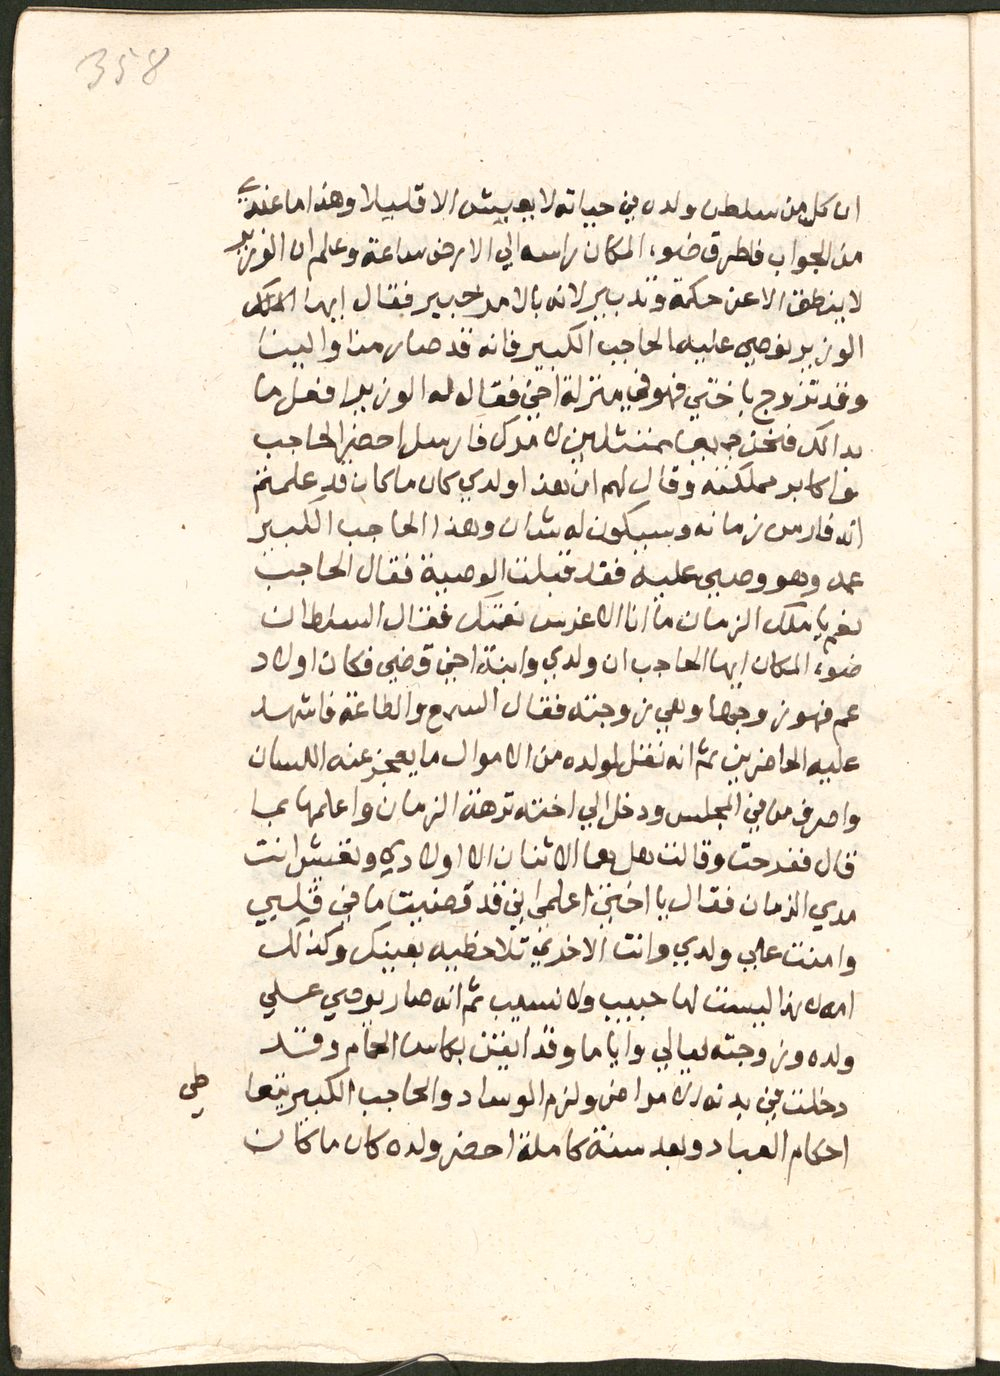 358
ان كل من سلطن ولده في حياته لا يعيش الا قليلا وهذا ما عندي
من الجواب فاطرق ضوء المكان راسه الي الارض ساعة وعلم ان الوزير
لا ينطق الا عن حكمة وتدبير لانه بالامر خبير فقال ايها الملك
الوزير نوصي عليه الحاجب الكبير فانه قد صار منا والينا
وقد تزوج باختي فهو في منزلة اخي فقال له الوزير افعل ما
بدالك فنحن جميعا ممتثلين لامرك فارسل احضر الحاجب
واكابر مملكته وقال لهم ان هذا ولدي كان ما كان قد علمتم
انه فارس زمانه وسيكون له شان وهذا الحاجب الكبير
عمه وهو وصيي عليه فقد قبلت الوصية فقال الحاجب
نعم يا ملك الزمان ما انا الا غرس نعمتك فقال السلطان
ضوء المكان ايها الحاجب ان ولدي وابنة اخي قضي فكان اولاد
عم فهو زوجها وهي زوجته فقال السمع والطاعة فاشهد
عليه الحاضرين ثم انه نقل لولده من الاموال ما يعجز عنه اللسان
واصرف من في المجلس ودخل الي اخته نزهة الزمان واعلمها بما
قال ففرحت وقالت هل هما الاثنان الا اولادي وتعيش انت
مدي الزمان فقال يا اختي اعلمي اني قد قضيت ما في قلبي
وامنت علي ولدي وانت الاخري تلاحظيه بعينك وكذلك
امه لانها ليست لها حبيب ولا نسيب ثم انه صار يوصي علي
ولده وزوجته ليالي واياما وقد ايقن بكاس الحمام وقد
دخلت في بدنه الامراض ولزم الوساد والحاجب الكبير يتعا
طي
احكام العباد وبعد سنة كاملة احضر ولده كان ما كان